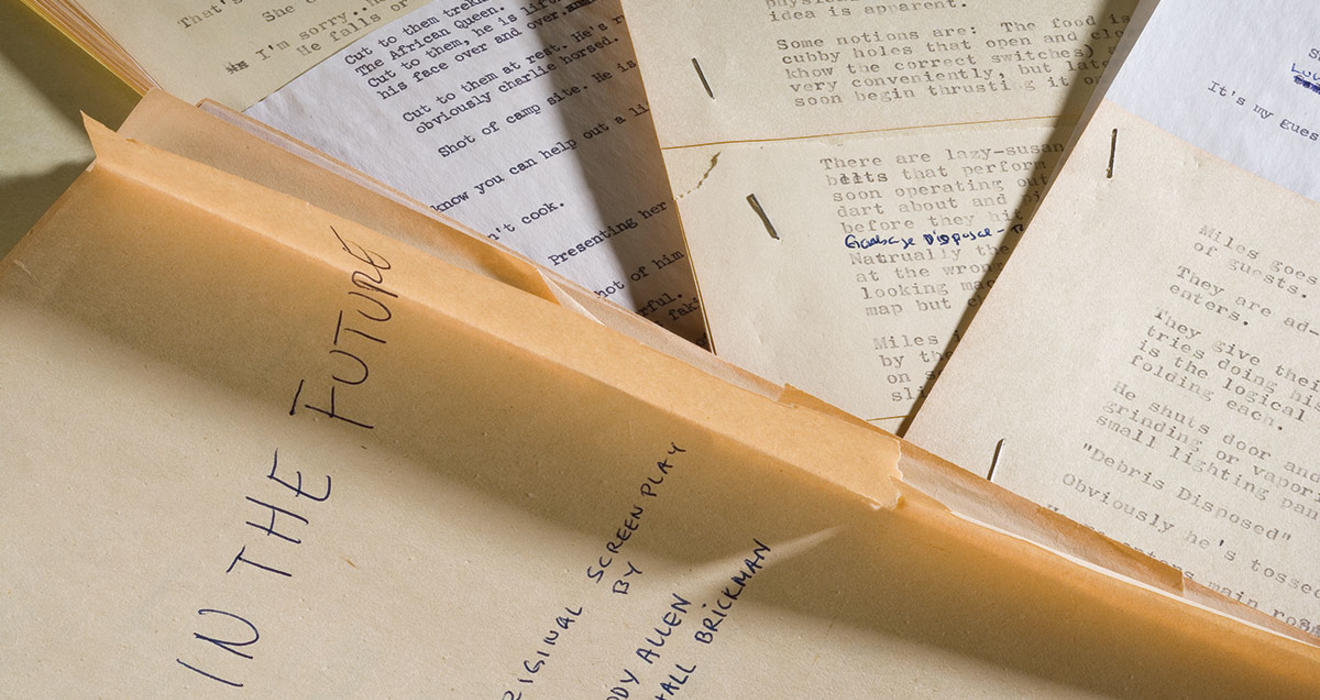 That's
She c
I'm sorry..h
He falls or
Cut to them trekk
The African Queen.
Cut to them, he is lift
his face over and over.
Cut to them at rest. He's
obviously charlie horsed.
He is
Shot of camp site.
know you can help out a li
n't cook.
Presenting her
hot of him
rful.
faki
idea is apparent.
Some notions are: The food is
cubby holes that open and clo
khow the correct switches) a
very conveniently, but late
soon begin thrusting it o
There are lazy-susan
belts that perform
soon operating out
dart about and
before they hit
Garbage Disposal -
Natrually the
at the wrong
looking mac
map but
Miles i
by the
on s
sli
It's my gues
Miles goes
of guests.
They are ad-
enters.
They give thei
tries doing his
is the logical
folding each.
He shuts door and
grinding or vapori
small lighting pan
"Debris Disposed"
Obviously he's tossed
enters main room
IN THE FUTURE
RIGINAL SCREENPLAY
BY
DY ALLEN
HALL BRICKMAN